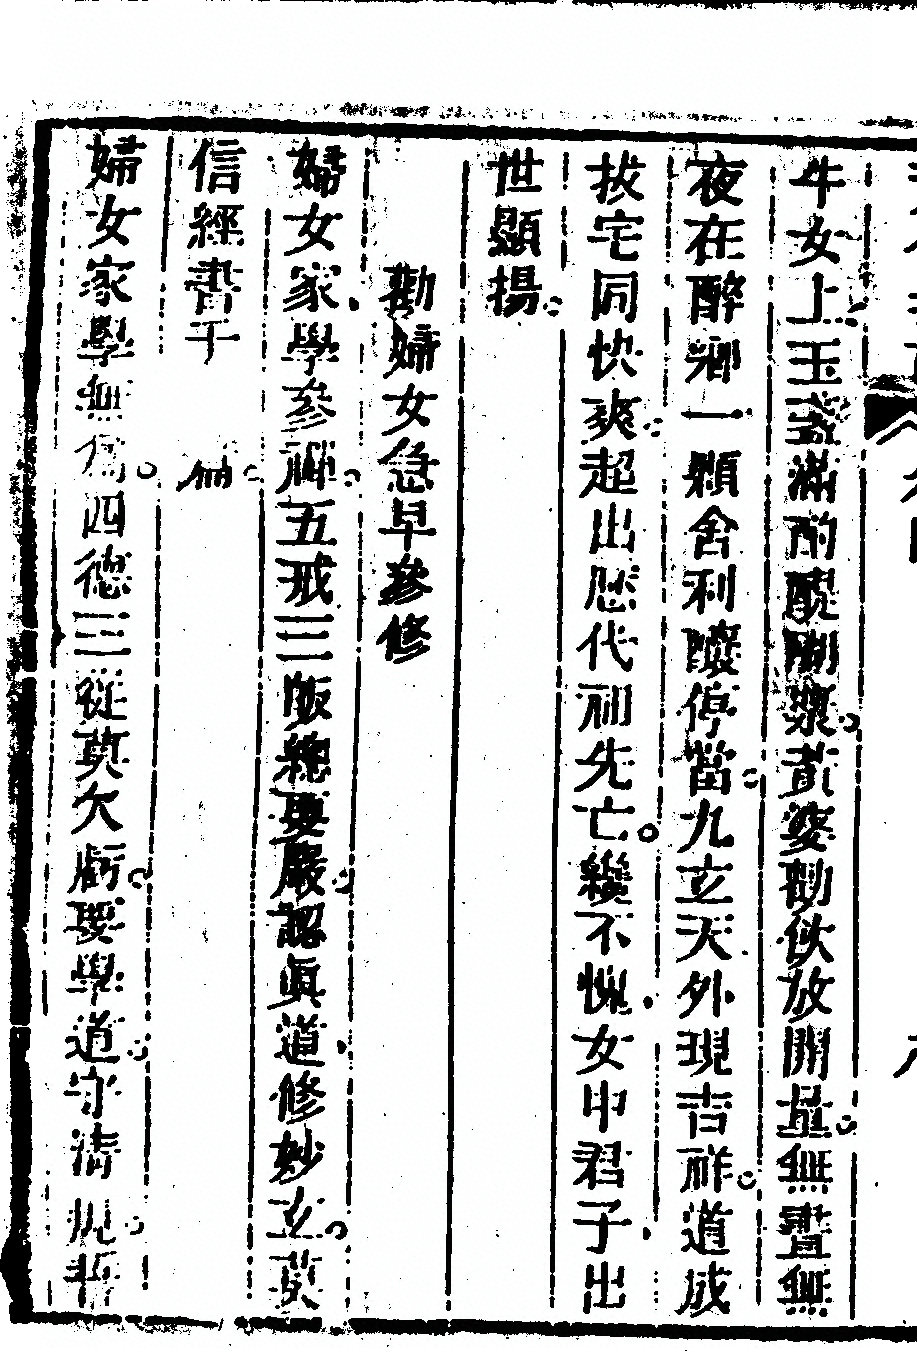 牛女上玉盞滿酌醍醐漿黃婆勸飲放開量無晝無
夜在醉鄉一顆舍利釀停當九玄天外現吉祥道成
拔宅同快爽超出歷代祖先亡纔不愧女中君子出
世顯揚
勸婦女急早參修
婦女家學參禪五戒三皈總要嚴認真道修妙玄莫
信經書千 冊
婦女家學無為四德三從莫欠虧要學道守清規